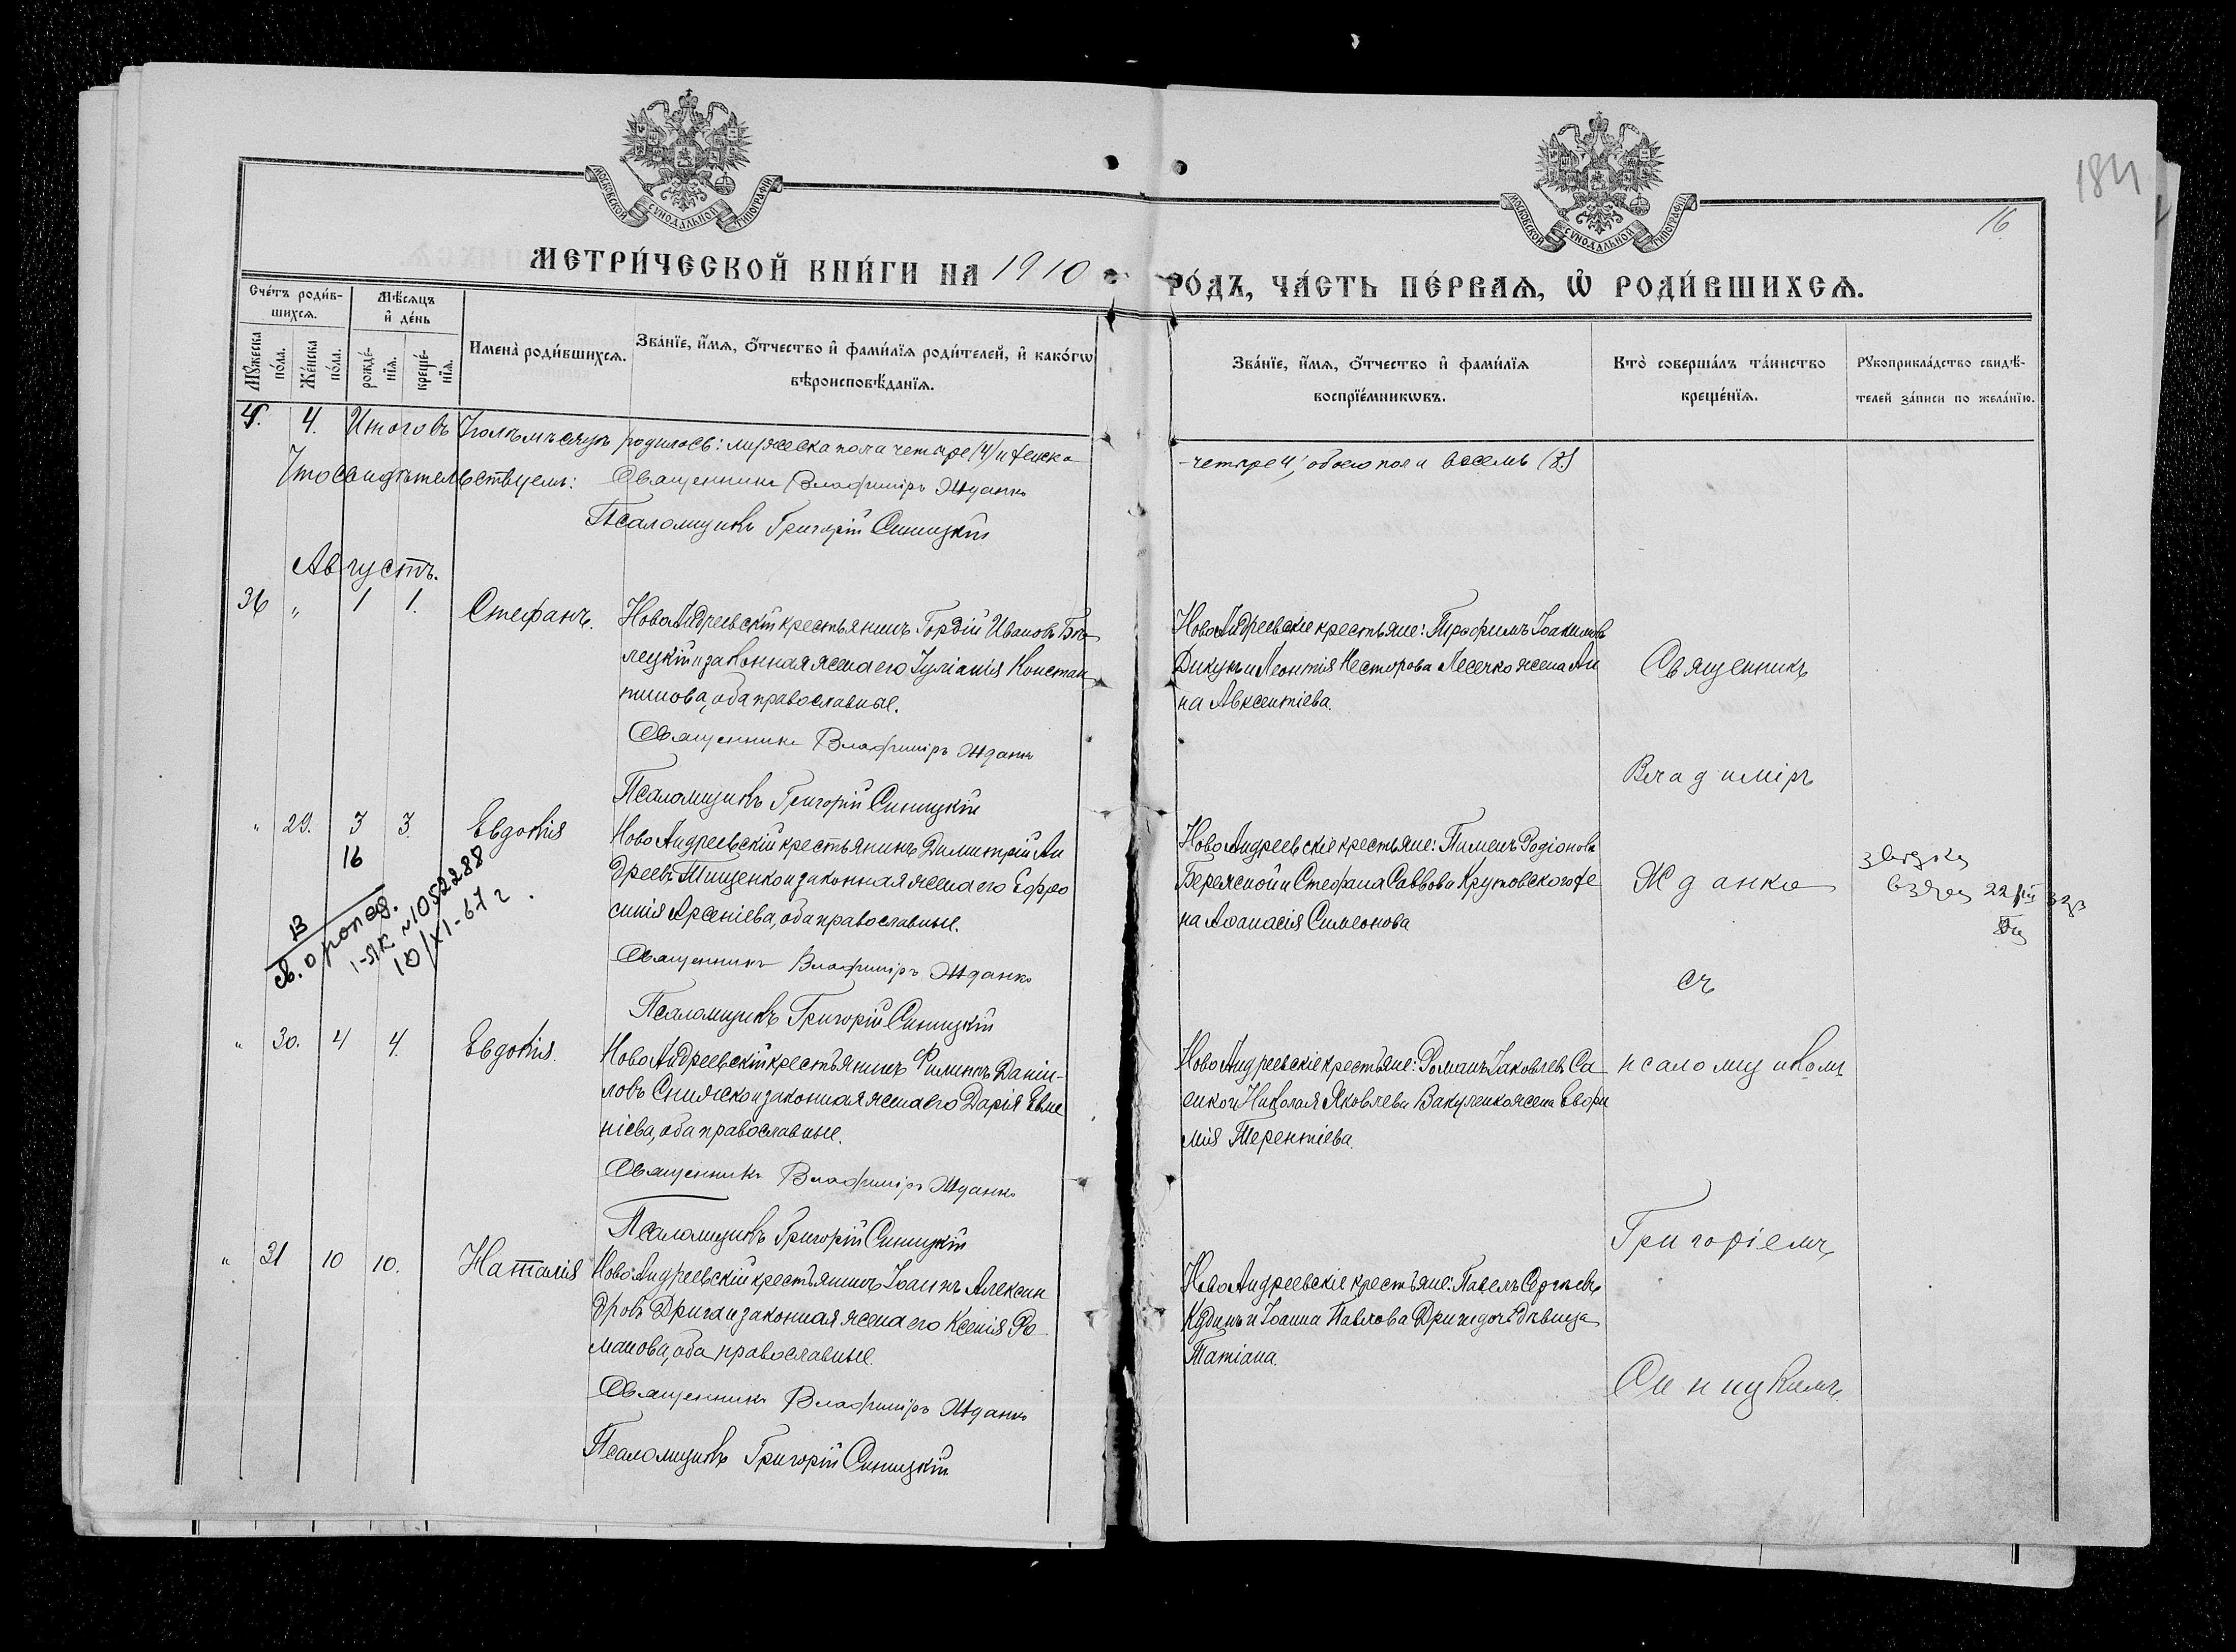 184
16
МОСКОВСКОЙ СУНОДАЛЬНОЙ ТИПОГРАФІИ
МОСКОВСКОЙ СУНОДАЛЬНОЙ ТИПОГРАФІИ
МЕТРИ́ЧЕСКОЙ КНИ́ГИ НА 1910
РО́ДЪ, ЧА́СТЬ ПЕ́РВАѦ, Ѡ҆ РОДИ́ВШИХСѦ.
Сче́тъ роди́в-
шихсѧ.
Мꙋ́жеска по́ла.
Же́нска по́ла.
Мѣ́сѧцъ
и҆ де́нь
рожде́-
нїѧ.
креще́-
нїѧ.
Имена̀ роди́вшихсѧ.
Зва́нїе, и҆́мѧ, ѻ҆́тчество и҆ фами́лїѧ роди́телей, и҆ како́гѡ
вѣроисповѣ́данїѧ.
Зва́нїе, и҆́мѧ, ѻ҆́тчество и҆ фами́лїѧ
воспрїе́мникѡвъ.
Кто̀ соверша́лъ та́инство
креще́нїѧ.
Рꙋкоприкла́дство свидѣ́-
телей за́писи по жела́нїю.
4. 4. Итого въ Іюлѣ мѣсяцѣ родилось: мужеска пола четыре (4) и женска
четыре 4, обоего пола восемь (8)
Что свидѣтельствуемъ: Священникъ Владиміръ Жданко
Псаломщикъ Григорій Синицкій
Августъ.
36 " 1 1. Стефанъ.
НовоАндреевскій крестьянинъ Гордій Ивановъ Бѣ-
лецкій и законная жена его Іуліанія Констан
тинова, оба православные.
Священникъ Владиміръ Жданко
Псаломщикъ Григорій Синицкій
НовоАндреевскіе крестьяне: Трофимъ Іоакимовъ
Дикунъ и Леонтія Несторова Лесечко жена Ан
на Авксентіева.
" 29. 3 3. Евдокія
16
НовоАндреевскій крестьянинъ Димитрій Ан
дреевъ Тищенко и законная жена его Ефро
синія Арсеніева, оба православные.
Священникъ Владиміръ Жданко
Псаломщикъ Григорій Синицкій
НовоАндреевскіе крестьяне: Пименъ Родіоновъ
Бережной и Стефана Саввова Крутовского же
на Аѳанасія Симеонова
св. о рожд.
I-ЯК №1052288
10/XI-67 г.
" 30. 4 4. Евдокія.
НовоАндреевскій крестьянинъ Филиппъ Даніи-
ловъ Снижко и законная жена его Дарія Евме
ніева, оба православные.
Священникъ Владиміръ Жданко
Псаломщикъ Григорій Синицкій
НовоАндреевскіе крестьяне: Романъ Іаковлевъ Са
енко и Николая Яковлева Вакуленко жена Евфи
мія Терентіева.
" 31 10 10. Наталія
НовоАндреевскій крестьянинъ Іоаннъ Алексан
дровъ Дрига и законная жена его Ксенія Ро
манова, оба православные.
Священникъ Владиміръ Жданко
Псаломщикъ Григорій Синицкій
НовоАндреевскіе крестьяне: Павелъ Сергѣевъ
Кудинъ и Іоанна Павлова Дриги дочь дѣвица
Татіана.
Священникъ
Владиміръ
Жданко
съ
псаломщикомъ
Григоріемъ
Синицкимъ.